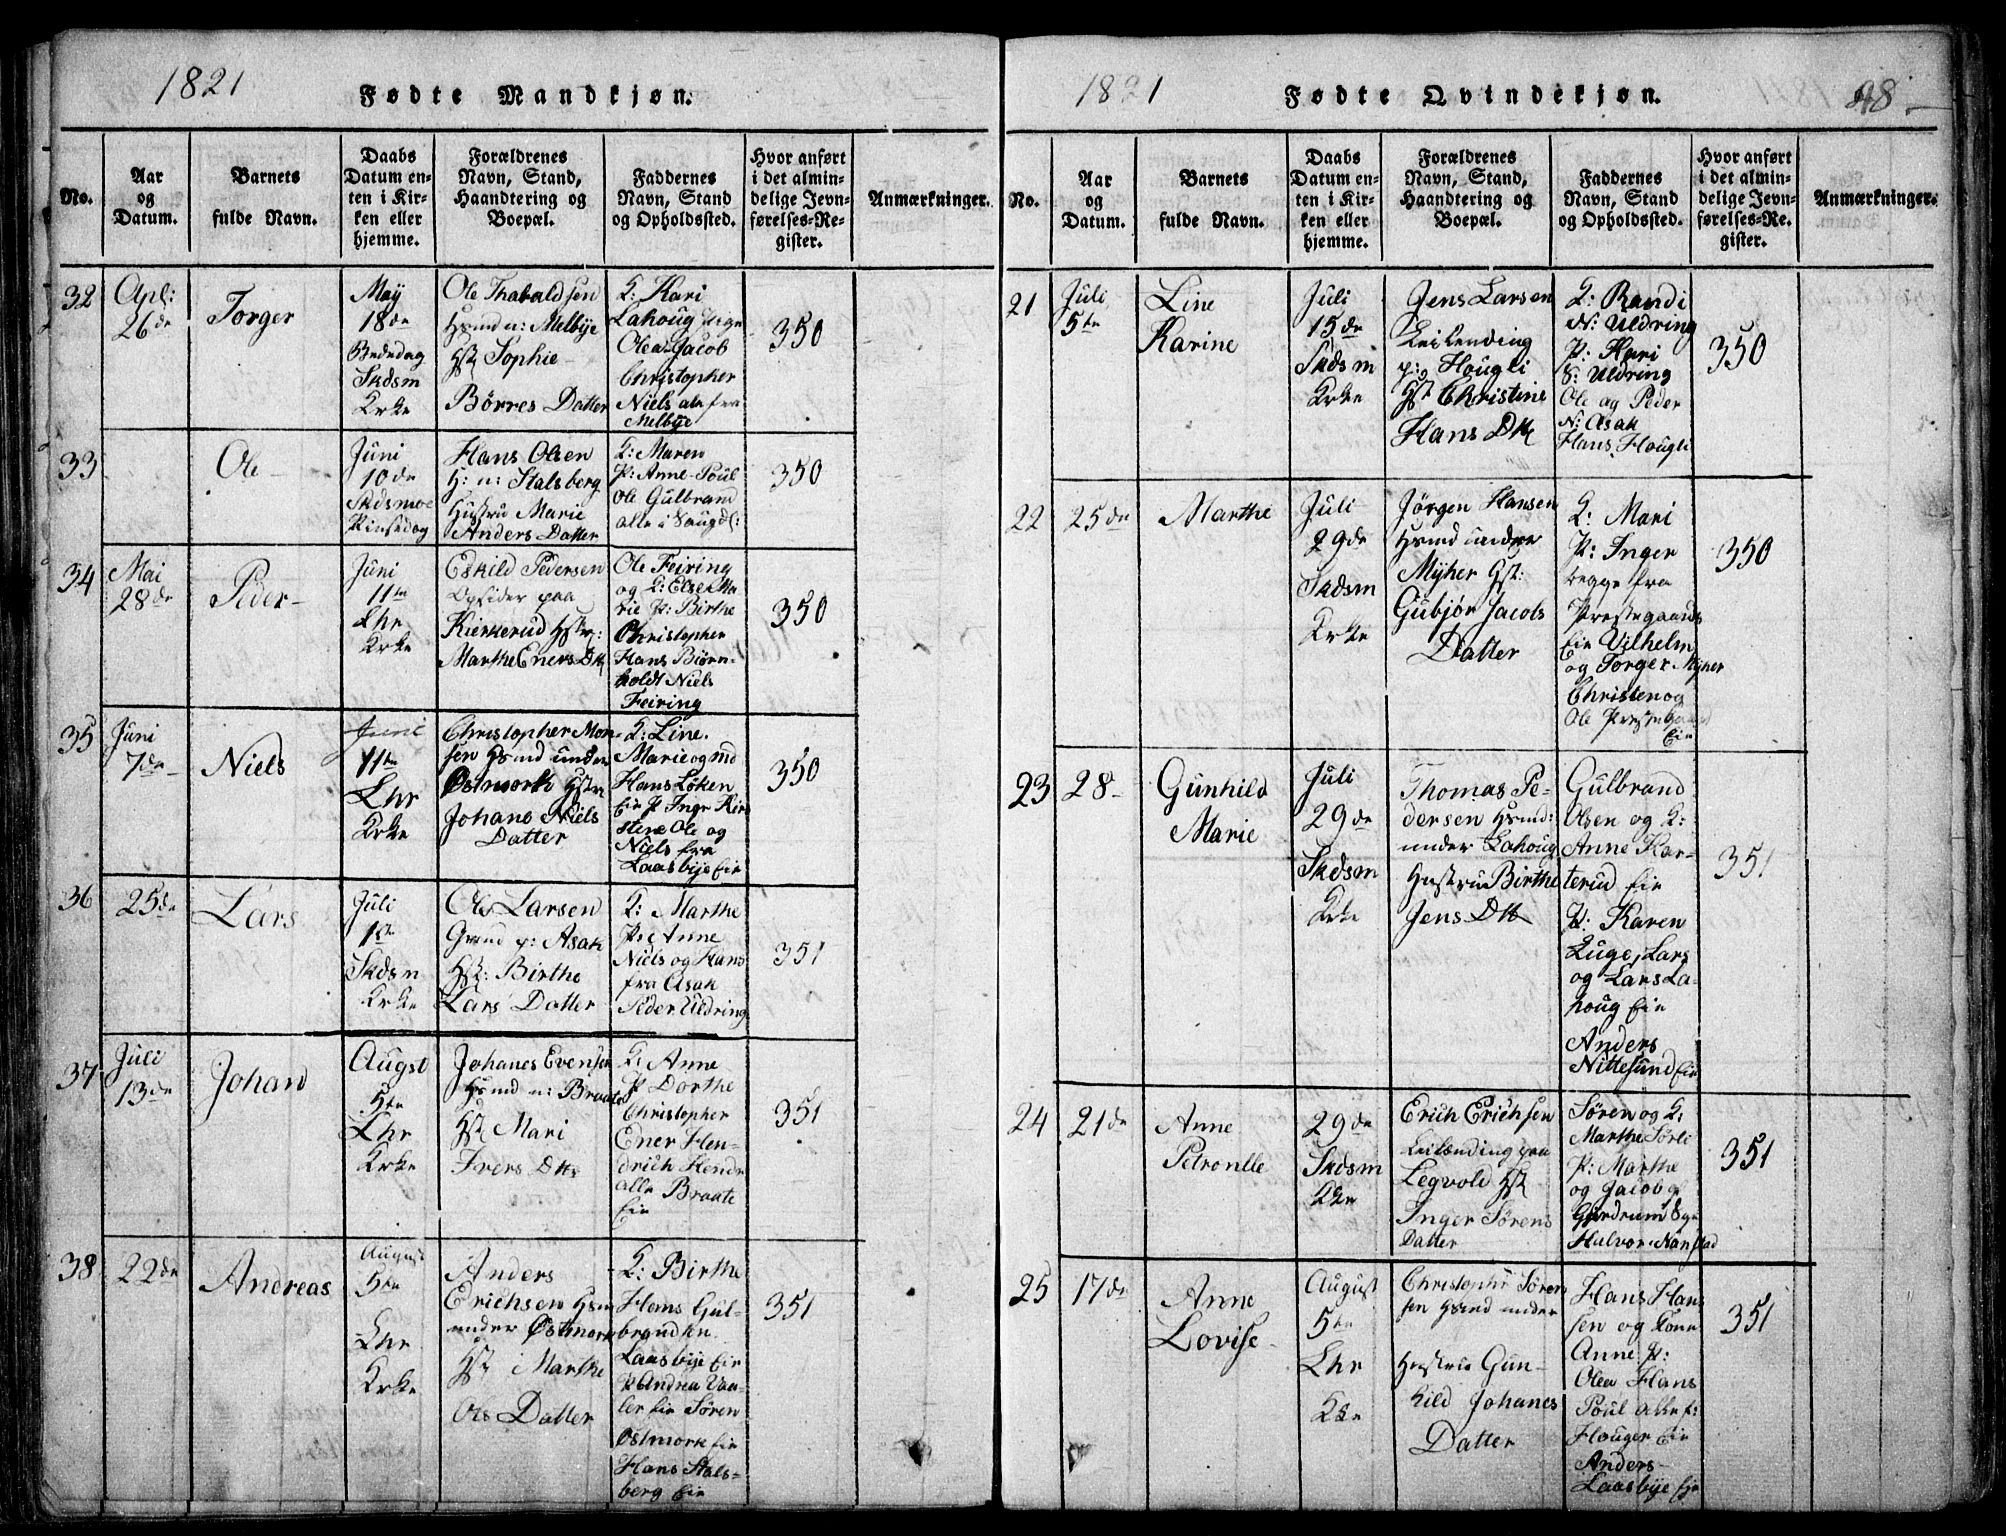 1821
Fødte Mandkjøn.
No.
Aar
og
Datum.
Barnets
fulde Navn.
Daabs
Datum en-
ten i Kir-
ken eller
hjemme.
Forældrenes
Navn, Stand,
Haandtering og
Boepæl.
Faddernes
Navn, Stand
og Opholdssted.
Hvor anført
i det almin-
delige Jevn-
førelses-Re-
gister.
Anmærkninger.
32
Apl:
26de
Torger
May
18de
Bededag
Skdsm
Krke
Ole Thabaldsen
Hsmd u: Melbye
Hst Sophie
Børres Datter
G: Kari
Lahoug
Olea Jacob
Christopher
Niels ale fra
Melbye
350
33
Ole
Juni
10de
Skdsmoe
Pinsedag
Hans Olsen
H: u: Stalsberg
Hustru Marie
Anders Datter
G: Maren
P: Anne Poul
Ole Gulbrand
alle i Saugdl:
350
34
Mai
28de
Peder
Juni
11te
Lhr
Krke
Eskild Pedersen
Opsider paa
Kierkerud Hstr:
Marthe Eners Dtr
Ole Feiring
og G: Else Ma
rie P: Birthe
Christopher
Hans Biørn-
holdt Niels
Feiring
350
35
Juni
7de
Niels
Juni
11te
Lhr
Krke
Christopher Mon-
sen Hsmd under
Østmork Hstr
Johane Niels
Datter
G: Line.
Marie og md
Hans Løken
Eie P Inger Kir
stene Ole og
Niels fra
Laasbye Eie
350
36
25de
Lars
Juli
1ste
Skdsm
Krke
Ole Larsen
Grmd p: Asak
Hst: Birthe
Lars Datter
G: Marthe
P: Anne
Niels og Hans
fra Asak
Peder Uldring
351
37
Juli
13de
Johan
Augst
5te
Lhr
Krke
Johanes Evensen
Hsmd u: Braate
Hst Mari
Ivers Dtr
G: Anne
P Dorthe
Christopher
Ener Hen-
drich Hendr
alle Braate
Eie
351
38
22de
Andreas
August
5te
Lhr
Krke
Anders
Erichsen Hsm
under Østmork
Hst Marthe
Ols Datter
G: Birthe
Hans Gul-
brand
Laasbye Eie
P Andrea Vaa-
ler Eie Søren
Østmork Eie
Hans Stals-
berg Eie
351
1821
Fødte Qvindekjøn.
98
No.
Aar
og
Datum.
Barnets
fulde Navn.
Daabs
Datum en-
ten i Kir-
ken eller
hjemme.
Forældrenes
Navn, Stand,
Haandtering og
Boepæl.
Faddernes
Navn, Stand
og Opholdssted.
Hvor anført
i det almin-
delige Jevn-
førelses-Re-
gister.
Anmærkninger.
21
Juli
5te
Line
Karine
Juli
15de
Skdsm
Krke
Jens Larsen
Leilending
p: Hougli
Hst Christine
Hans Dtr
G: Randi
N: Uldring
P: Kari
S: Uldring
Ole og Peder
N: Asak
Hans Hougli
350
22
25de
Marthe
Juli
29de
Skdsm
Krke
Jørgen Hansen
Hsmd under
Myher Hst:
Gubjør Jacobs
Datter
G: Mari
P: Inger
begge fra
Prestegaards
Eie Vilhelm
og Torger Myher
Christen og
Ole Prestegaard
Eie
350
23
28
Gunhild
Marie
Juli
29de
Skdsm
Krke
Thomas Pe-
dersen Hsmd:
under Lahoug
Hustru Birthe
Jens Dtr
Gulbrand
Olsen og G:
Anne Kar-
terud Eie
P: Karen
Luge, Lars
og Lars La-
houg Eie
Anders
Nittesund Eie
351
24
21de
Anne
Petronlle
29de
Skdsm
Kke
Erich Erichsen
Leilending paa
Legvold Hst
Inger Sørens
Datter
Søren og G:
Marthe Sørli
P: Marthe
og Jacob
Gjerdrum Sgn
Halvor Nanstad
351
25
17de
Anne
Lovise
August
5te
Lhr
Kke
Christopher Søren
sen Hsmd under
Hustrue Gun-
hild Johanes
Datter
Hans Hans
sen og Kone
Anne P:
Olea Hans
Poul alle f:
Houger Eie
Anders
Laasbye Eie
351